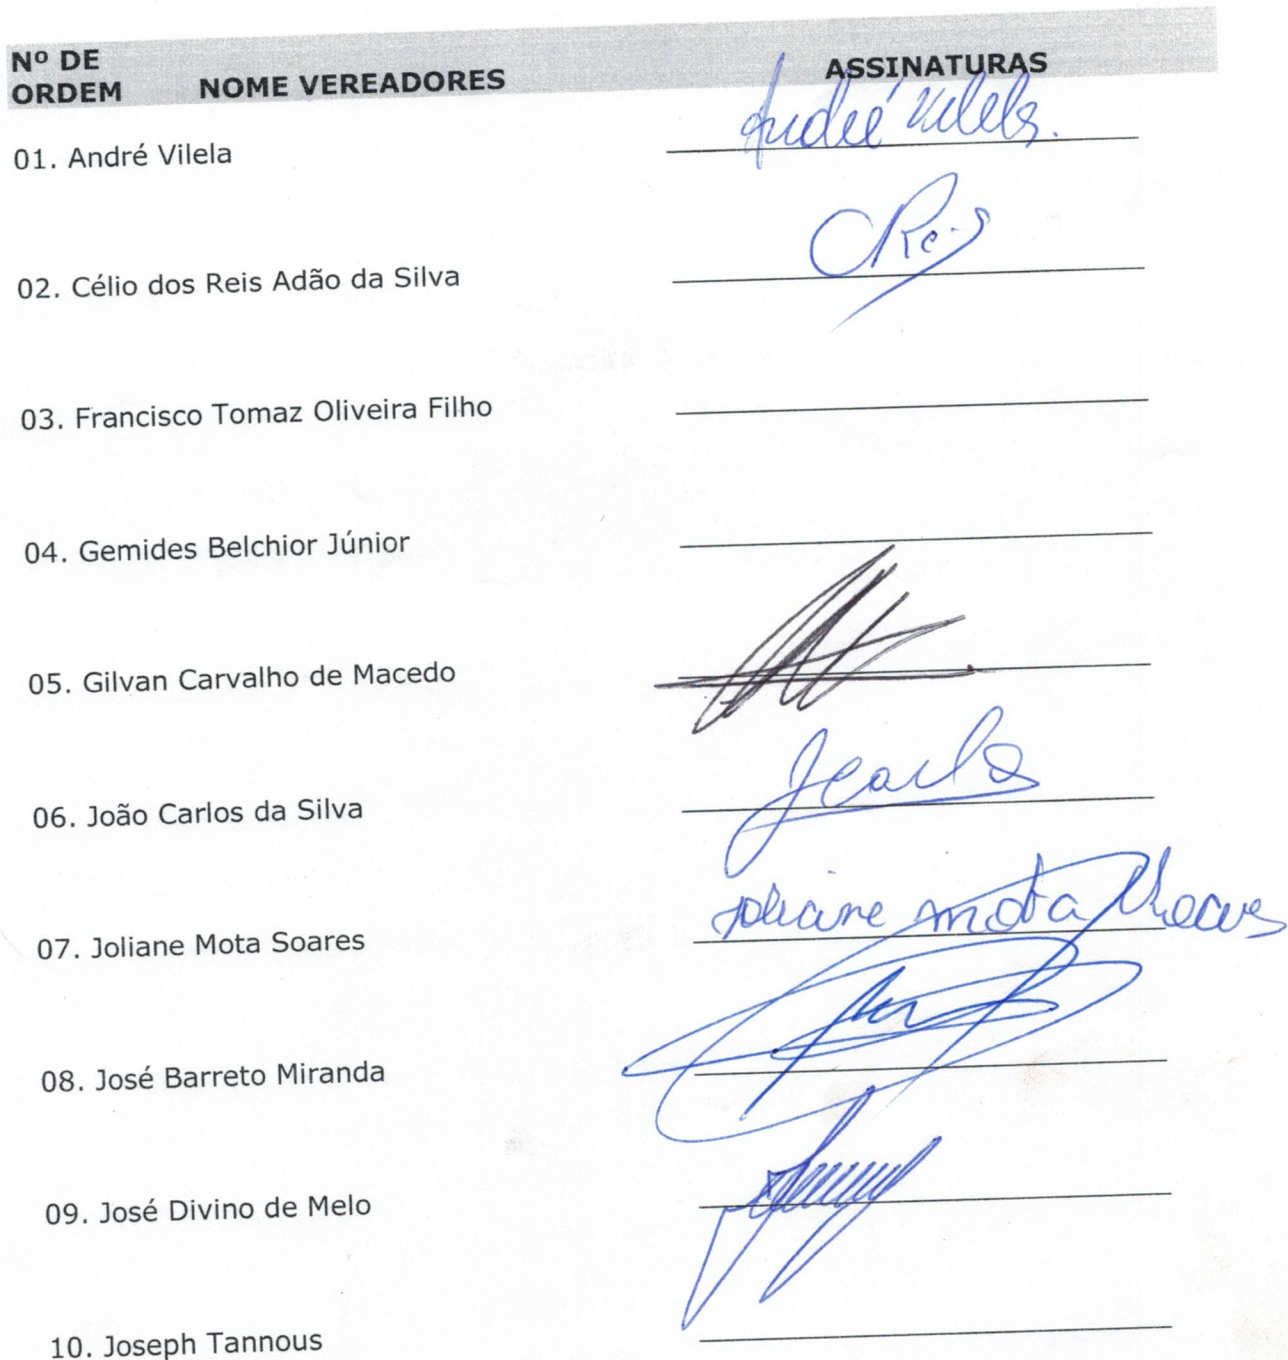 Nº DE
ORDEM NOME VEREADORES ASSINATURAS
01. André Vilela André Vilela.
02. Célio dos Reis Adão da Silva CReis
03. Francisco Tomaz Oliveira Filho
04. Gemides Belchior Júnior
05. Gilvan Carvalho de Macedo
06. João Carlos da Silva JCarlos
07. Joliane Mota Soares Joliane mota
08. José Barreto Miranda
09. José Divino de Melo
10. Joseph Tannous